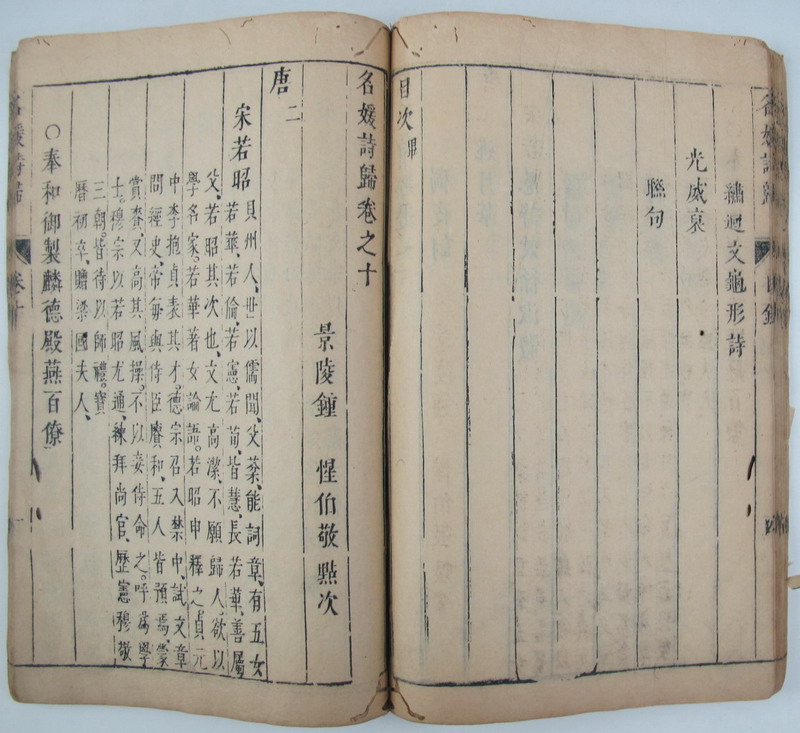 繡迴文龜形詩
光威裒
聯句
目次畢
名媛詩歸卷之十
景陵鍾 惺伯敬點次
唐二
宋若昭
貝州人、世以儒聞、父棻、能詞章、有五女
若華、若倫、若憲、若荀、皆慧、長若華、善屬
文、若昭其次也、文尤高潔、不願歸人、欲以
學名家。若華著女論語。若昭申釋之貞元
中李抱貞表其才。德宗召入禁中、試文章
問經史、帝每與侍臣賡和、五人皆預焉、蒙
賞賚、又高其風操、不以妾侍命之。呼為學
士。穆宗以若昭尤通、練拜尚官、歷憲穆敬
三朝。皆待以師禮。寶
曆初卒、贈梁國夫人、
○奉和御製麟德殿燕百僚
名媛詩歸
卷十